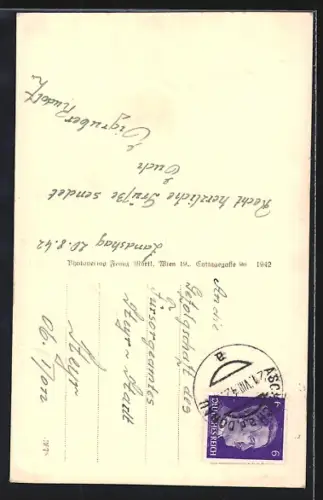 Landshaag 20.8.42
Recht herzliche Grüße sendet
Euch
Eigruber Rudolf
Photoverlag Franz Mörtl, Wien 19., Cottagegasse 90 1942
An die
Gefolgschaft des
Fürsorgeamtes
Steyr - Stadt
Steyr
Ob. Don
ASCHA
21.VIII.42
a
DEUTSCHES REICH
6